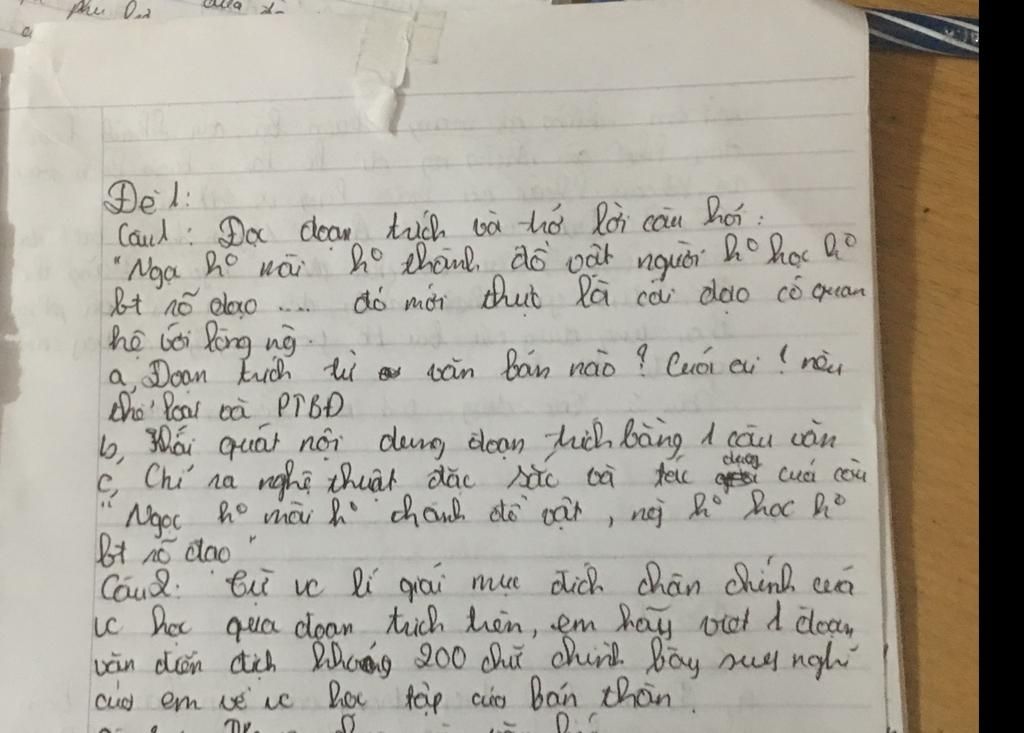 phu
của
Đề 1:
Câu1: Đọc đoạn trích và trả lời câu hỏi:
"Ngọc ho mài ho thành đồ vật người ho học ho
bt rõ đạo .... đó mới thực là cái đạo có quan
hệ với lòng ng.
a, Đoạn trích từ văn bản nào? Của ai? nêu
thể loại và PTBĐ
b, Khái quát nội dung đoạn trích bằng 1 câu văn
c, Chỉ ra nghệ thuật đặc sắc và tác dụng của câu
"Ngọc ho mài ho thành đồ vật, ng ho học ho
bt rõ đạo"
Câu2: Từ vc lí giải mục đích chân chính của
vc học qua đoạn trích trên, em hãy viết 1 đoạn
văn diễn dịch khoảng 200 chữ trình bày suy nghĩ
của em về vc học tập của bản thân.